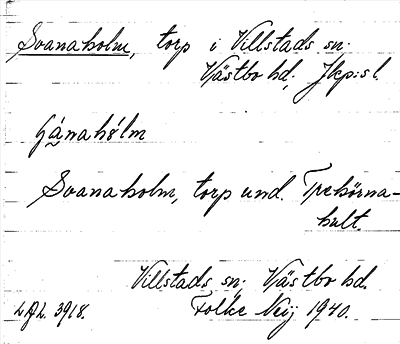 Svanaholm, torp i Villstads sn.
Västbo hd, Jkp:s l.
Svanaholm, torp und. Trehörna-
hult.
Villstads sn, Västbo hd.
L.A.L. 3918. Folke Neij 1940.